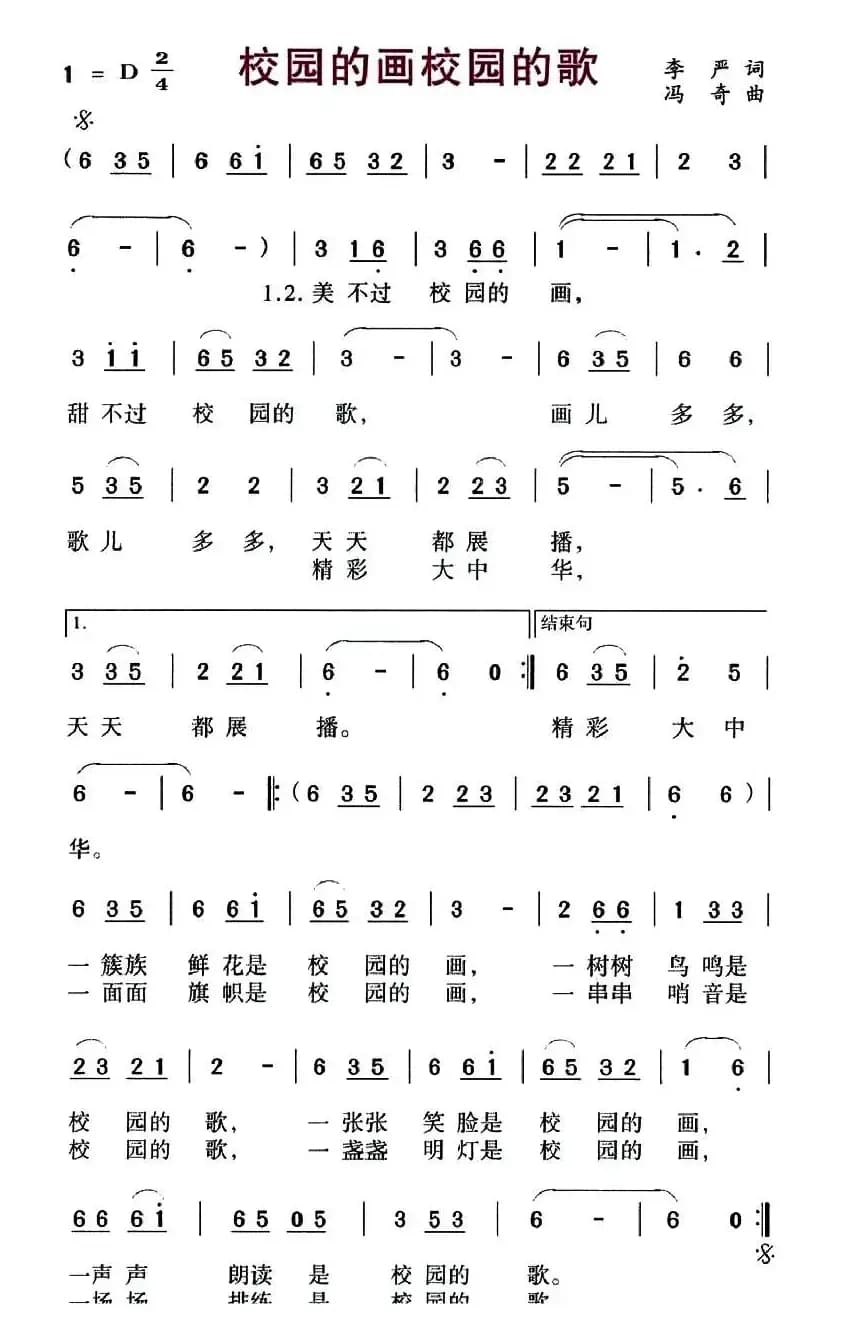 1 = D 2/4 校园的画校园的歌 李 严 词
冯 奇 曲
( 6 3 5 | 6 6 1 | 6 5 3 2 | 3 - | 2 2 2 1 | 2 3 |
6 - | 6 - ) | 3 1 6 | 3 6 6 | 1 - | 1 . 2 |
1.2. 美 不过 校 园的 画,
3 1 1 | 6 5 3 2 | 3 - | 3 - | 6 3 5 | 6 6 |
甜 不过 校 园的 歌, 画儿 多 多,
5 3 5 | 2 2 | 3 2 1 | 2 2 3 | 5 - | 5 . 6 |
歌 儿 多 多, 天 天 都 展 播,
精 彩 大 中 华,
1. 结束句
3 3 5 | 2 2 1 | 6 - | 6 0 :|| 6 3 5 | 2 5 |
天 天 都 展 播。 精 彩 大 中
6 - | 6 - ||: ( 6 3 5 | 2 2 3 | 2 3 2 1 | 6 6 ) |
华。
6 3 5 | 6 6 1 | 6 5 3 2 | 3 - | 2 6 6 | 1 3 3 |
一 簇族 鲜 花是 校 园的 画, 一 树树 鸟 鸣是
一 面面 旗 帜是 校 园的 画, 一 串串 哨 音是
2 3 2 1 | 2 - | 6 3 5 | 6 6 1 | 6 5 3 2 | 1 6 |
校 园的 歌, 一 张张 笑 脸是 校 园的 画,
校 园的 歌, 一 盏盏 明 灯是 校 园的 画,
6 6 6 1 | 6 5 0 5 | 3 5 3 | 6 - | 6 0 :||
一声 声 朗读 是 校 园的 歌。
一场 场 排练 是 校 园的 歌